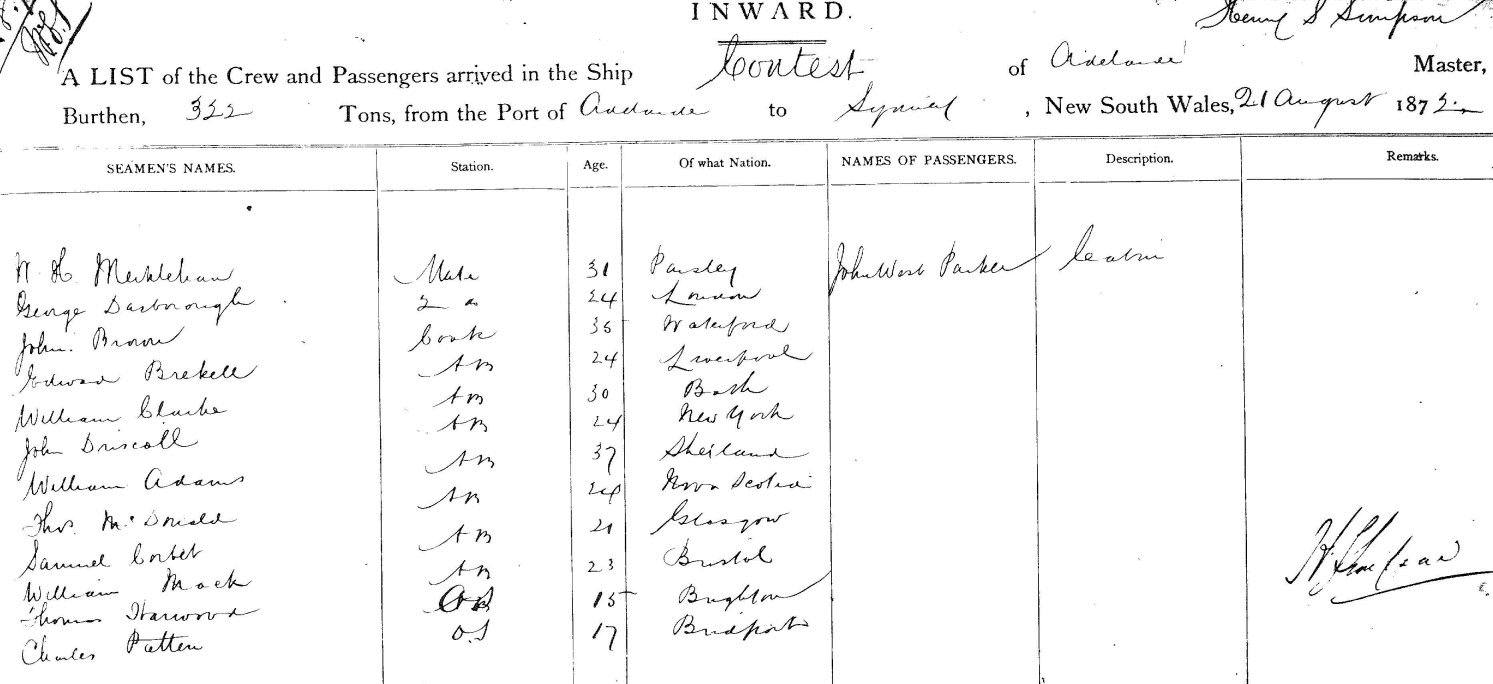 INWARD.
Henry S Simpson
A LIST of the Crew and Passengers arrived in the Ship Contest of Adelaide Master,
Burthen, 322 Tons, from the Port of Adelaide to Sydney, New South Wales, 21 August 1872
SEAMEN'S NAMES. Station. Age. Of what Nation. NAMES OF PASSENGERS. Description. Remarks.
W. H. Meiklehan Mate 31 Paisley John West Parker Cabin
George Dasborough 2 do 24 London
John Brown Cook 35 Waterford
Edward Brekell AB 24 Liverpool
William Clarke AB 30 Bath
John Driscoll AB 24 New York
William Adams AB 37 Shetland
Thos. McDonald AB 24 Nova Scotia
Samuel Corbet AB 21 Glasgow
William Mock AB 23 Bristol
Thomas Harwood OS 15 Brighton
Charles Patten O.S 17 Bridport